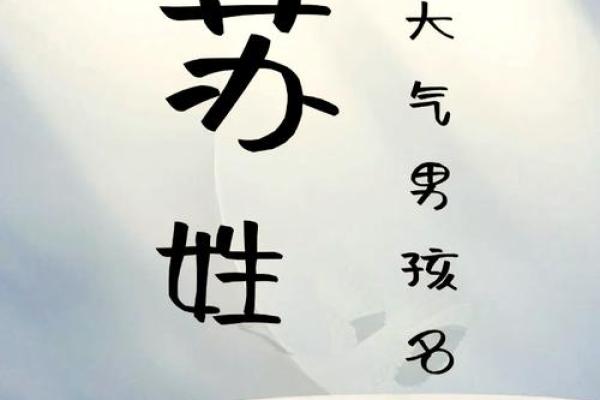 苏姓
大气男孩名